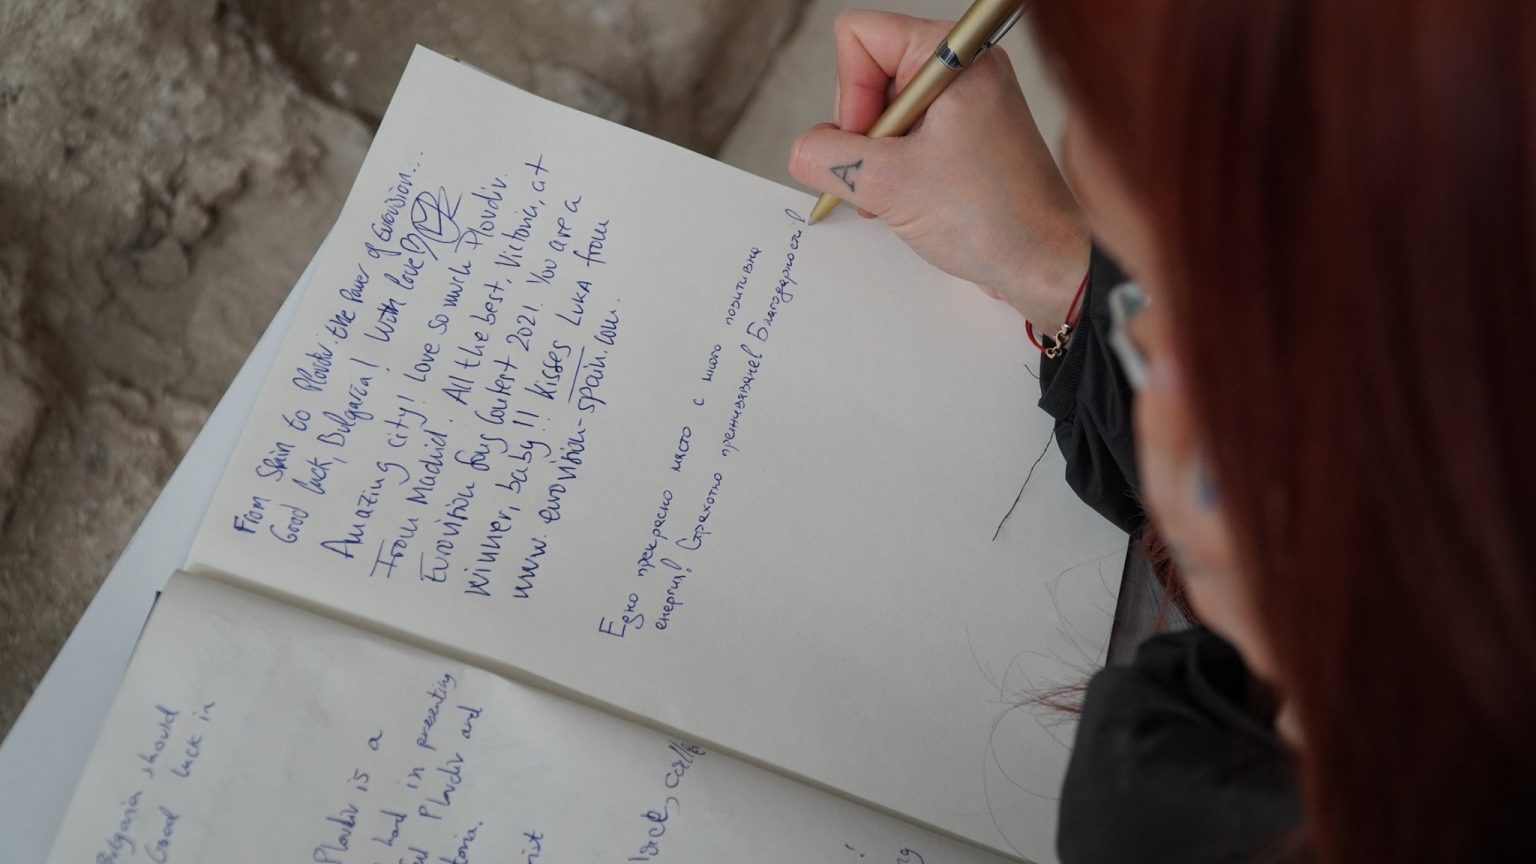 From Skin to Plovdiv. the Power of Eurovision...
Good luck, Bulgaria! With love
Amazing city! Love so much Plovdiv.
From Madrid. All the best, Victoria, at
Eurovision Song Contest 2021. You are a
winner, baby!! Kisses LUKA from
www.eurovision-spain.com.
Едно прекрасно място с много позитивна
енергия! Страхотно преживяване! Благодарности
A
Bulgaria should
Good luck in
Plovdiv is a
had in presenting
Plovdiv and